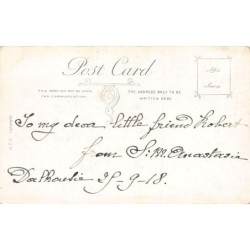 Post Card
THIS PORTION MAY BE USED
FOR COMMUNICATION
THE ADDRESS ONLY TO BE
WRITTEN HERE
Affix
Stamp
To my dear little friend Robert
from S. M. Anastasia
Dalhousie 25-9-18.